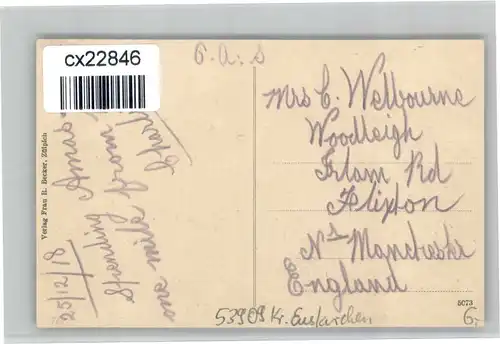 cx22846
Verlag Frau R. Becker, Zülpich
25/12/18
Spending Xmas
one mile from
Charl
O.A.S
Mrs C. Welbourne
Woodleigh
Irlam Rd
Flixton
Nr Manchester
England
5073
53909 Kr. Euskirchen
6,-